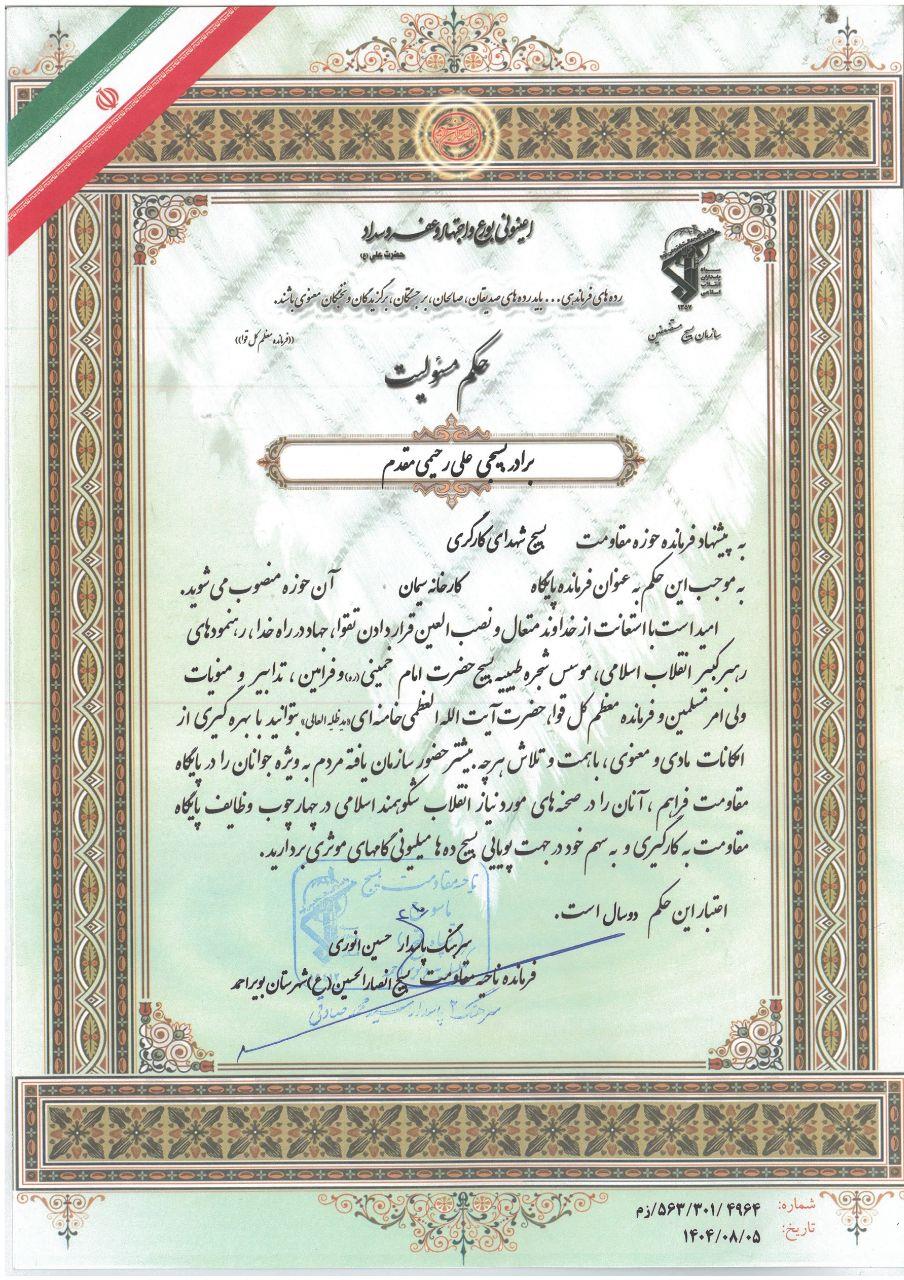 اعینونی بورع واجتهاد وعفه و سداد
حضرت علی (ع)
سپاه پاسداران انقلاب اسلامی
۱۳۵۷
سازمان بسیج مستضعفین
رده های فرماندهی ... باید رده های صدیقان، صالحان، برجستگان، برگزیدگان و نخبگان معنوی باشند.
((فرمانده معظم کل قوا))
حکم مسئولیت
برادر بسیجی علی رحیمی مقدم
به پیشنهاد فرمانده حوزه مقاومت بسیج شهدای کارگری
به موجب این حکم به عنوان فرمانده پایگاه کارخانه سیمان آن حوزه منصوب می شوید.
امید است با استعانت از خداوند متعال و نصب العین قرار دادن تقوا، جهاد در راه خدا، رهنمودهای
رهبر کبیر انقلاب اسلامی، موسس شجره طیبیه بسیج حضرت امام خمینی (ره) و فرامین، تدابیر و منویات
ولی امر مسلمین و فرمانده معظم کل قوا، حضرت آیت الله العظمی خامنه ای «مدظله العالی» بتوانید با بهره گیری از
امکانات مادی و معنوی، با همت و تلاش هرچه بیشتر حضور سازمان یافته مردم به ویژه جوانان را در پایگاه
مقاومت فراهم، آنان را در صحنه های مورد نیاز انقلاب شکوهمند اسلامی در چهارچوب وظایف پایگاه
مقاومت به کارگیری و به سهم خود در جهت پویایی بسیج ده ها میلیونی گامهای موثری بردارید.
اعتبار این حکم دو سال است.
ناحیه مقاومت بسیج
سرهنگ پاسدار حسین انوری
فرمانده ناحیه مقاومت بسیج انصارالحسین (ع) شهرستان بویراحمد
سرهنگ ۲ پاسدار سید محمد صادقی
شماره: ۴۹۶۴ /۵۶۳/۳۰۱/زم
تاریخ: ۱۴۰۴/۰۸/۰۵